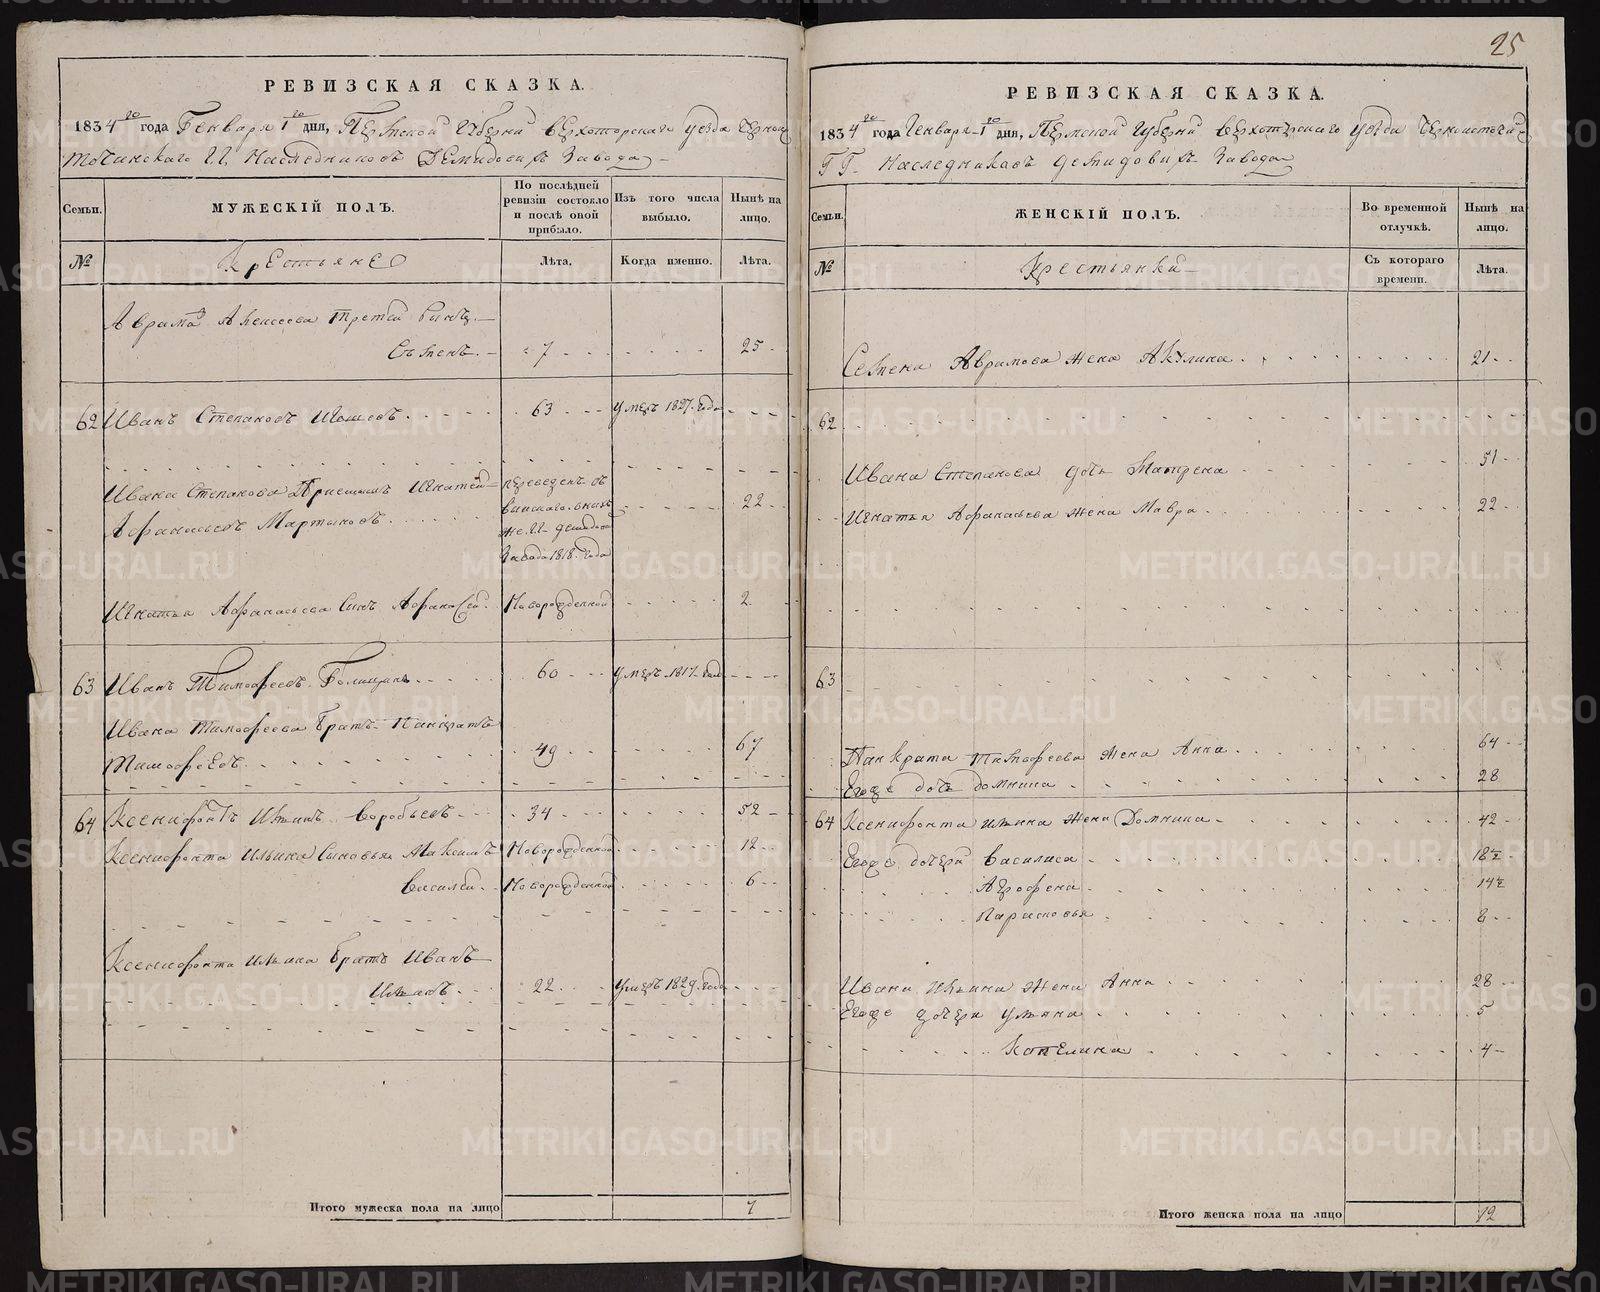 25
РЕВИЗСКАЯ СКАЗКА.
1834го года Генваря 1го дня, Пермской Губернiи верхотурскаго уезда Черноис
точинскаго Г.Г. Наследниковъ Демидовыхъ Завода
Семьи.
МУЖЕСКІЙ ПОЛЪ.
По послѣдней ревизіи состояло и послѣ оной прибыло.
Изъ того числа выбыло.
Нынѣ на лицо.
№
Крестьяне
Лѣта.
Когда именно.
Лѣта.
Аврама Алексеева третей сынъ
Семенъ. 7 25
62 Иванъ Степановъ 63 умеръ 1827. года
Ивана Степанова Приемышъ Игнатей
Афанасьевъ Мартыновъ. 22
переведенъ въ
же Г.Г. Демидовы
Завода 1818. года
Игнатья Афанасьева Сынъ Афанасей. Новорожденной 2
63 Иванъ Тимофеевъ 60 умеръ 1817. года
Ивана Тимофеева Братъ Панкратъ
Тимофеевъ. 49 67
64 Ксенифонтъ Ильинъ Воробьевъ 34 52
Ксенифонта Ильина Сыновья Максимъ Новорожденной 12
Василей. Новорожденной 6
Ксенифонта Ильина Братъ Иванъ
Ильинъ. 22 умеръ 1829. года
Итого мужеска пола на лицо 7
РЕВИЗСКАЯ СКАЗКА.
1834го года Генваря 1го дня, Пермской Губернiи верхотурскаго уезда Черноисточинскаго
Г.Г. Наследниковъ Демидовыхъ Завода
Семьи.
ЖЕНСКІЙ ПОЛЪ.
Во временной отлучкѣ.
Нынѣ на лицо.
№
Крестьянки
Съ котораго времени.
Лѣта.
Семена Аврамова жена Акулина 21
62
Ивана Степанова дочь Матрена 51
Игнатья Афанасьева жена Мавра 22
63
Панкрата Тимофеева жена Анна 64
Егоже дочь Домнина 28
64 Ксенифонта Ильина жена Домнина 42
Егоже дочери Василиса 18½
Агрофена 14½
Парасковья 8
Ивана Ильина жена Анна 28
Егоже дочери Ульяна 5
4
Итого женска пола на лицо 12
METRIKI.GASO-URAL.RU